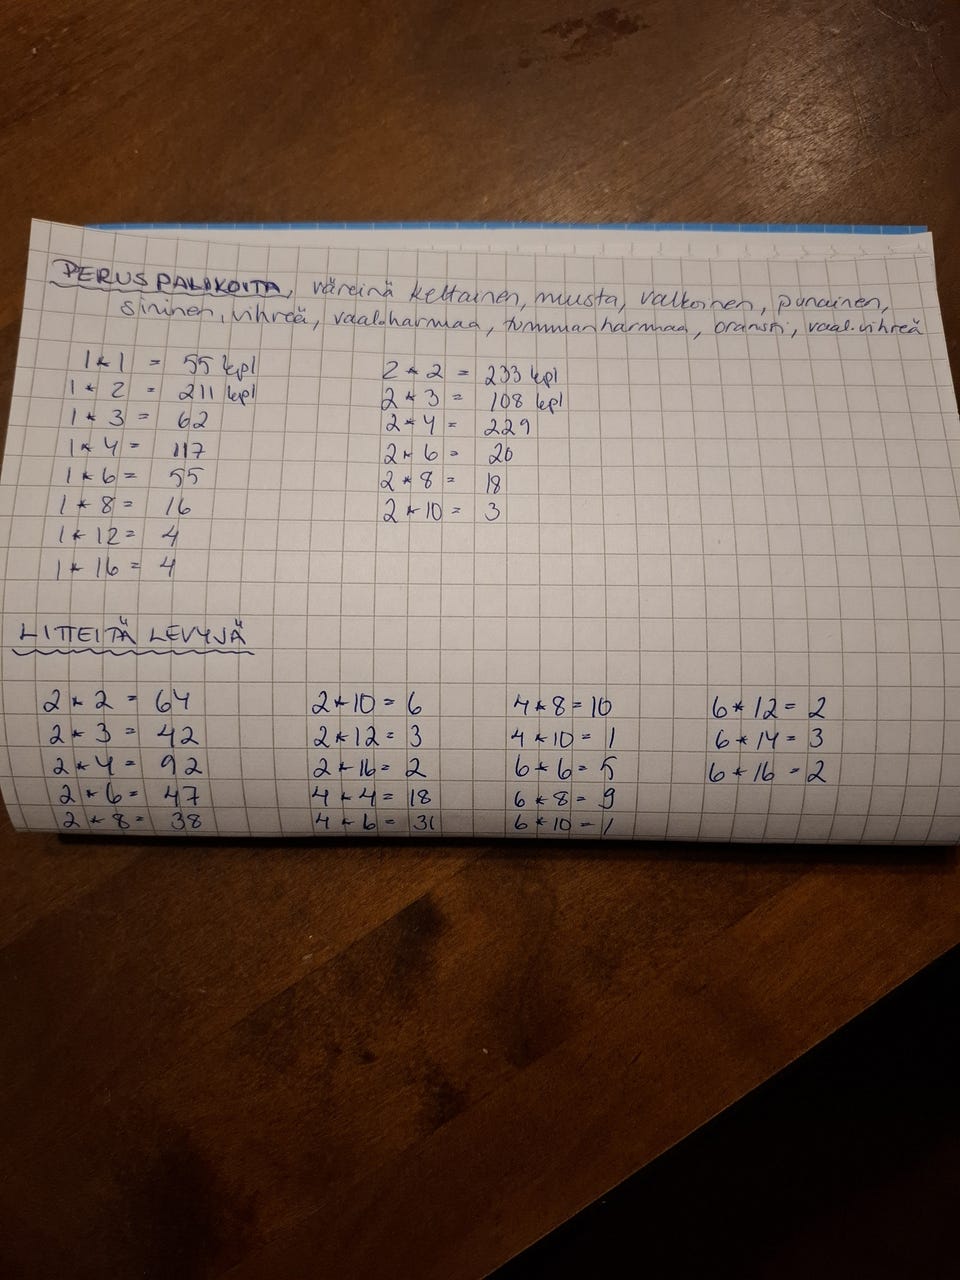 PERUSPALIKOITA, väreinä keltainen, musta, valkoinen, punainen,
sininen, vihreä, vaal.harmaa, tummanharmaa, oranssi, vaal.vihreä
1*1 = 55 kpl
1*2 = 211 kpl
1*3 = 62
1*4 = 117
1*6 = 55
1*8 = 16
1*12 = 4
1*16 = 4
2*2 = 233 kpl
2*3 = 108 kpl
2*4 = 229
2*6 = 20
2*8 = 18
2*10 = 3
LITTEITÄ LEVYJÄ
2*2 = 64
2*3 = 42
2*4 = 92
2*6 = 47
2*8 = 38
2*10 = 6
2*12 = 3
2*16 = 2
4*4 = 18
4*6 = 31
4*8 = 10
4*10 = 1
6*6 = 5
6*8 = 9
6*10 = 1
6*12 = 2
6*14 = 3
6*16 = 2